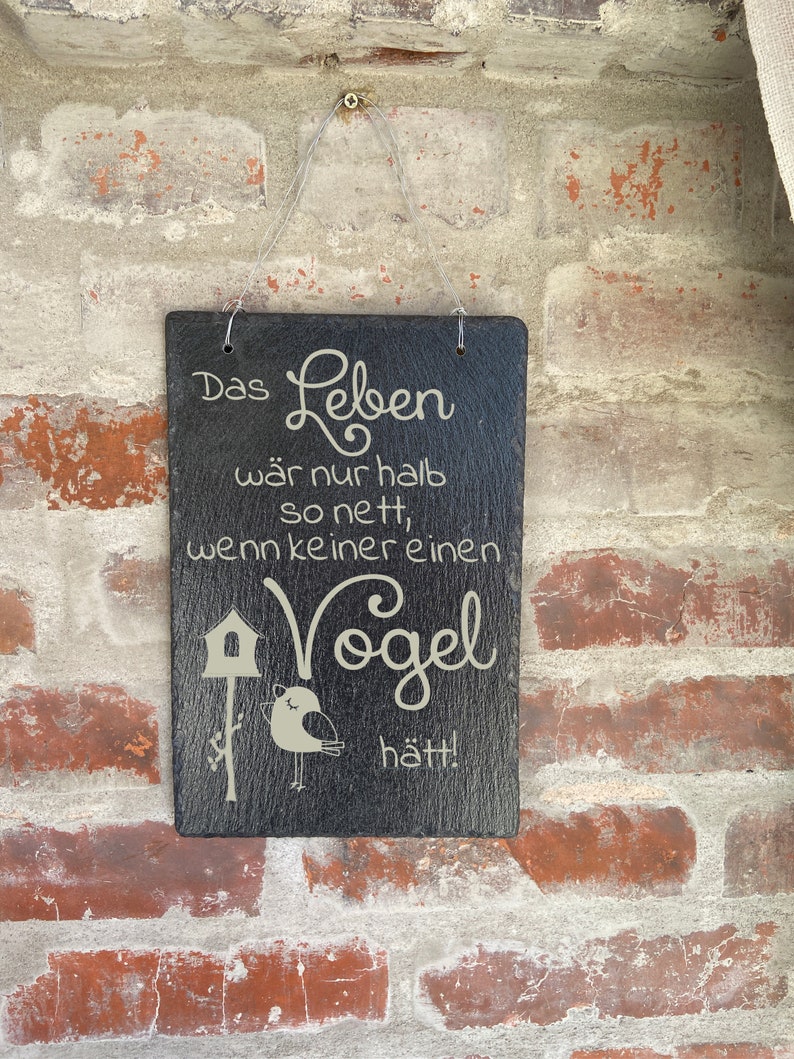 Das Leben
wär nur halb
so nett,
wenn keiner einen
Vogel
hätt!